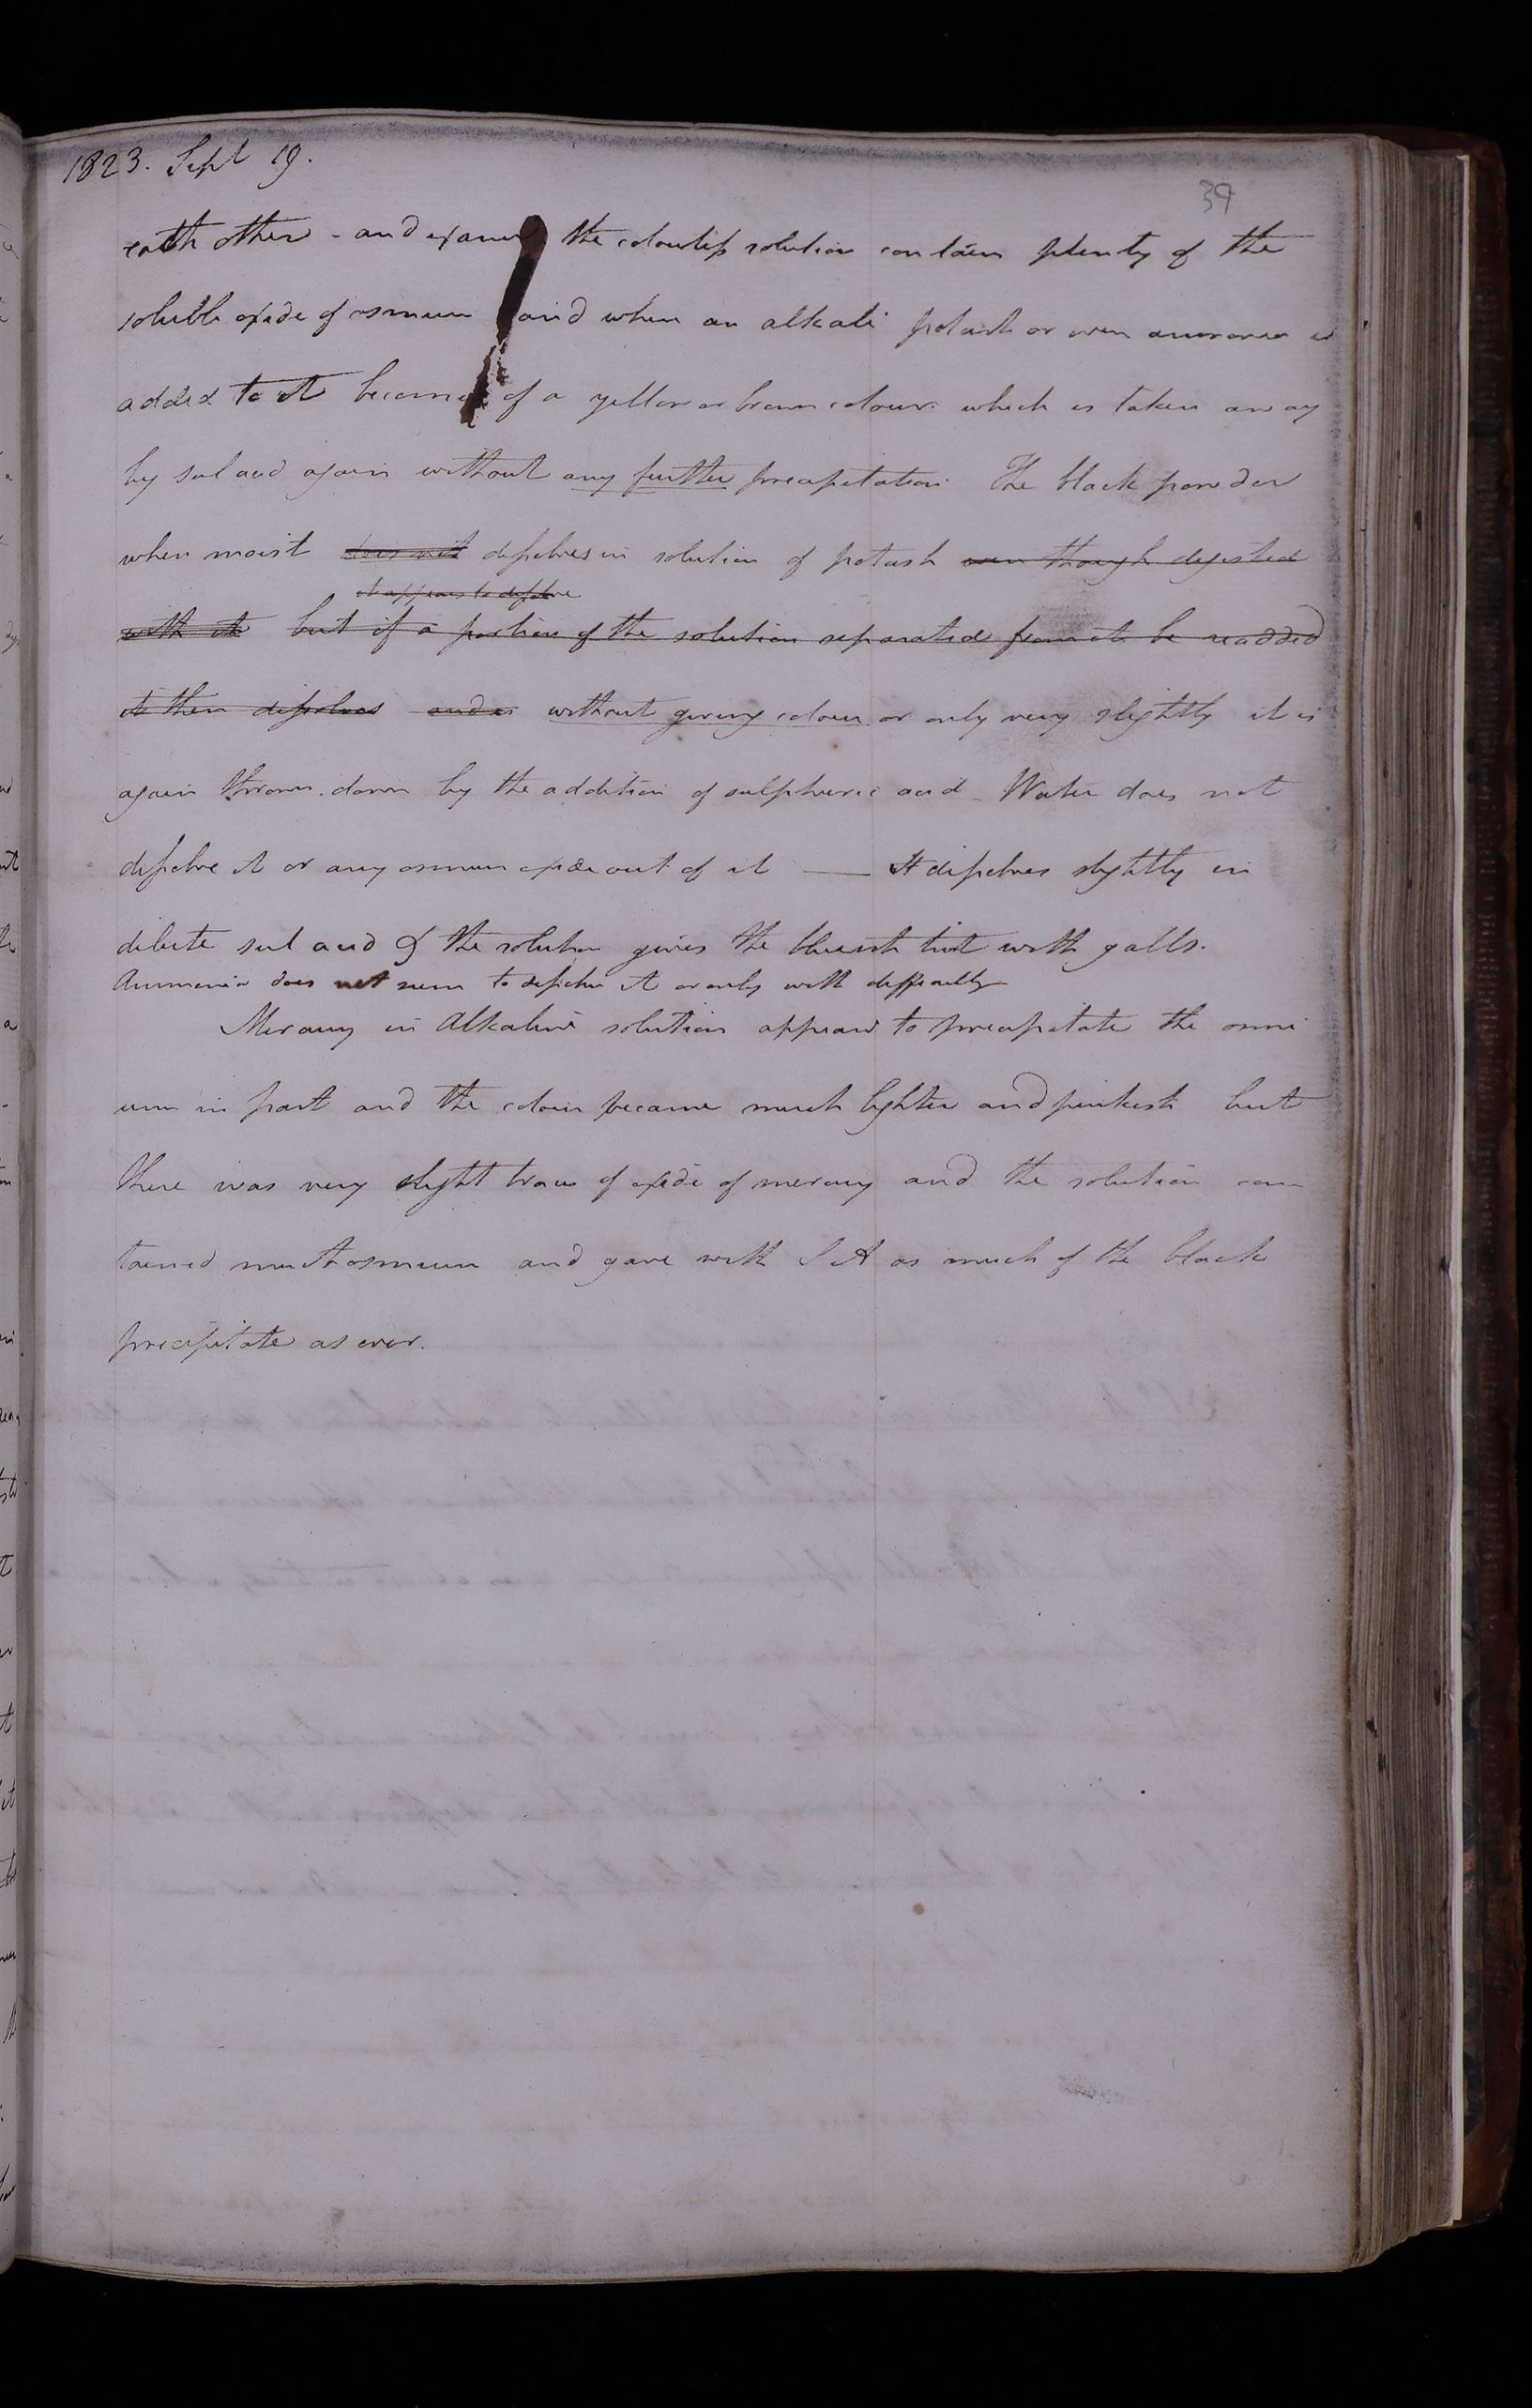 1823. Sept 19.
39
each other - and examd the colourless solution contains plenty of the
soluble oxide of osmium and when an alkali potash or even ammonia is
added to it becomes of a yellow or brown colour which is taken away
by sul acid again without any further precipitation The black powder
when moist does not dissolves in solution of potash even though digested
it appears to dissolve
with it but if a portion of the solution separated from it be readded
it then dissolves and is without giving colour or only very slightly it is
again thrown down by the addition of sulphuric acid - Water does not
dissolve it or any osmium oxide out of it — It dissolves slightly in
dilute sul acid & the solution gives the blueish tint with galls.
Ammonia does not seem to dissolve it or only with difficulty
Mercury in Alkaline solution appears to precipitate the osmi
um in part and the colour became much lighter and pinkish but
there was very slight trace of oxide of mercury and the solution con
tained much osmium and gave with S A as much of the black
precipitate as ever.